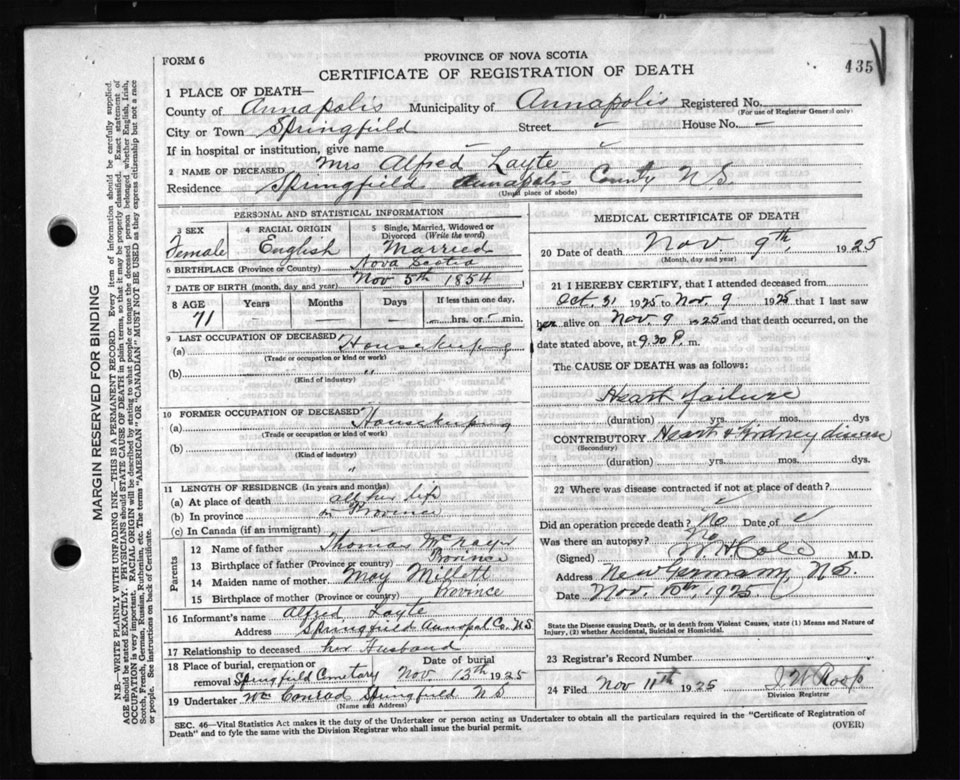 FORM 6
PROVINCE OF NOVA SCOTIA
CERTIFICATE OF REGISTRATION OF DEATH
435
1 PLACE OF DEATH—
County of Annapolis Municipality of Annapolis Registered No.
(For use of Registrar General only)
City or Town Springfield Street House No. –
If in hospital or institution, give name
2 NAME OF DECEASED Mrs Alfred Layte
Residence Springfield Annapolis County N S.
(Usual place of abode)
PERSONAL AND STATISTICAL INFORMATION
3 SEX Female
4 RACIAL ORIGIN English
5 Single, Married, Widowed or Divorced (Write the word) Married
6 BIRTHPLACE (Province or Country) Nova Scotia
7 DATE OF BIRTH (month, day, and year) Nov 5th 1854
8 AGE Years Months Days If less than one day,
71 — — hrs. or min.
9 LAST OCCUPATION OF DECEASED
(a) Housekeeping
(Trade or occupation or kind or work)
(b) "
(Kind of industry)
10 FORMER OCCUPATION OF DECEASED
(a) Housekeeping
(Trade or occupation or kind or work)
(b)
(Kind of industry)
"
11 LENGTH OF RESIDENCE (In years and months)
(a) At place of death all her life
(b) In province in Province
(c) In Canada (if an immigrant)
Parents
12 Name of father Thomas
13 Birthplace of father (Province or country) Province
14 Maiden name of mother May Millett
15 Birthplace of mother (Province or country) Province
16 Informant's name Alfred Layte
Address Springfield Annapol Co. N S
17 Relationship to deceased her Husband
18 Place of burial, cremation or removal Springfield Cemetary Date of burial Nov 13th 1925
19 Undertaker Wm Conrad Springfield N S
(Name and Address)
MEDICAL CERTIFICATE OF DEATH
20 Date of death Nov. 9th, 1925
(Month, day and year)
21 I HEREBY CERTIFY, that I attended deceased from
Oct. 31 1925 to Nov. 9 1925 that I last saw
her alive on Nov 9 1925 and that death occurred, on the
date stated above, at 9.30 P. m.
The CAUSE OF DEATH was as follows:
Heart failure
(duration) yrs. mos. dys
CONTRIBUTORY Heart & Kidney disease
(Secondary)
(duration) yrs. mos. dys.
22 Where was disease contracted if not at place of death?
Did an operation precede death? No Date of
Was there an autopsy? No
(Signed) W H Cole M.D.
Address New Germany N.S.
Date Nov. 10th, 1925.
State the Disease causing Death, or in death from Violent Causes, state (1) Means and Nature of Injury, (2) whether Accidental, Suicidal or Homicidal.
23 Registrar's Record Number
24 Filed Nov 11th 1925 J W Roop
Division Registrar
SEC. 46—Vital Statistics Act makes it the duty of the Undertaker or person acting as Undertaker to obtain all the particulars required in the "Certificate of Registration of
Death" and to fyle the same with the Division Registrar who shall issue the burial permit.
(OVER)
MARGIN RESERVED FOR BINDING
N.B.—WRITE PLAINLY WITH UNFADING INK—THIS IS A PERMANENT RECORD. Every item of information should be carefully supplied.
AGE should be stated EXACTLY. PHYSICIANS should STATE CAUSE OF DEATH in plain terms, so that it may be properly classified. Exact statement of
OCCUPATION is very important. RACIAL ORIGIN will be described by stating to what people or tongue the deceased person belonged whether English, Irish,
Scotch, French, German, Russian, Ruthenian, etc. The terms "AMERICAN" OR "CANADIAN" MUST NOT BE USED as they express citizenship but not a race
or people. See instructions on back of Certificate.